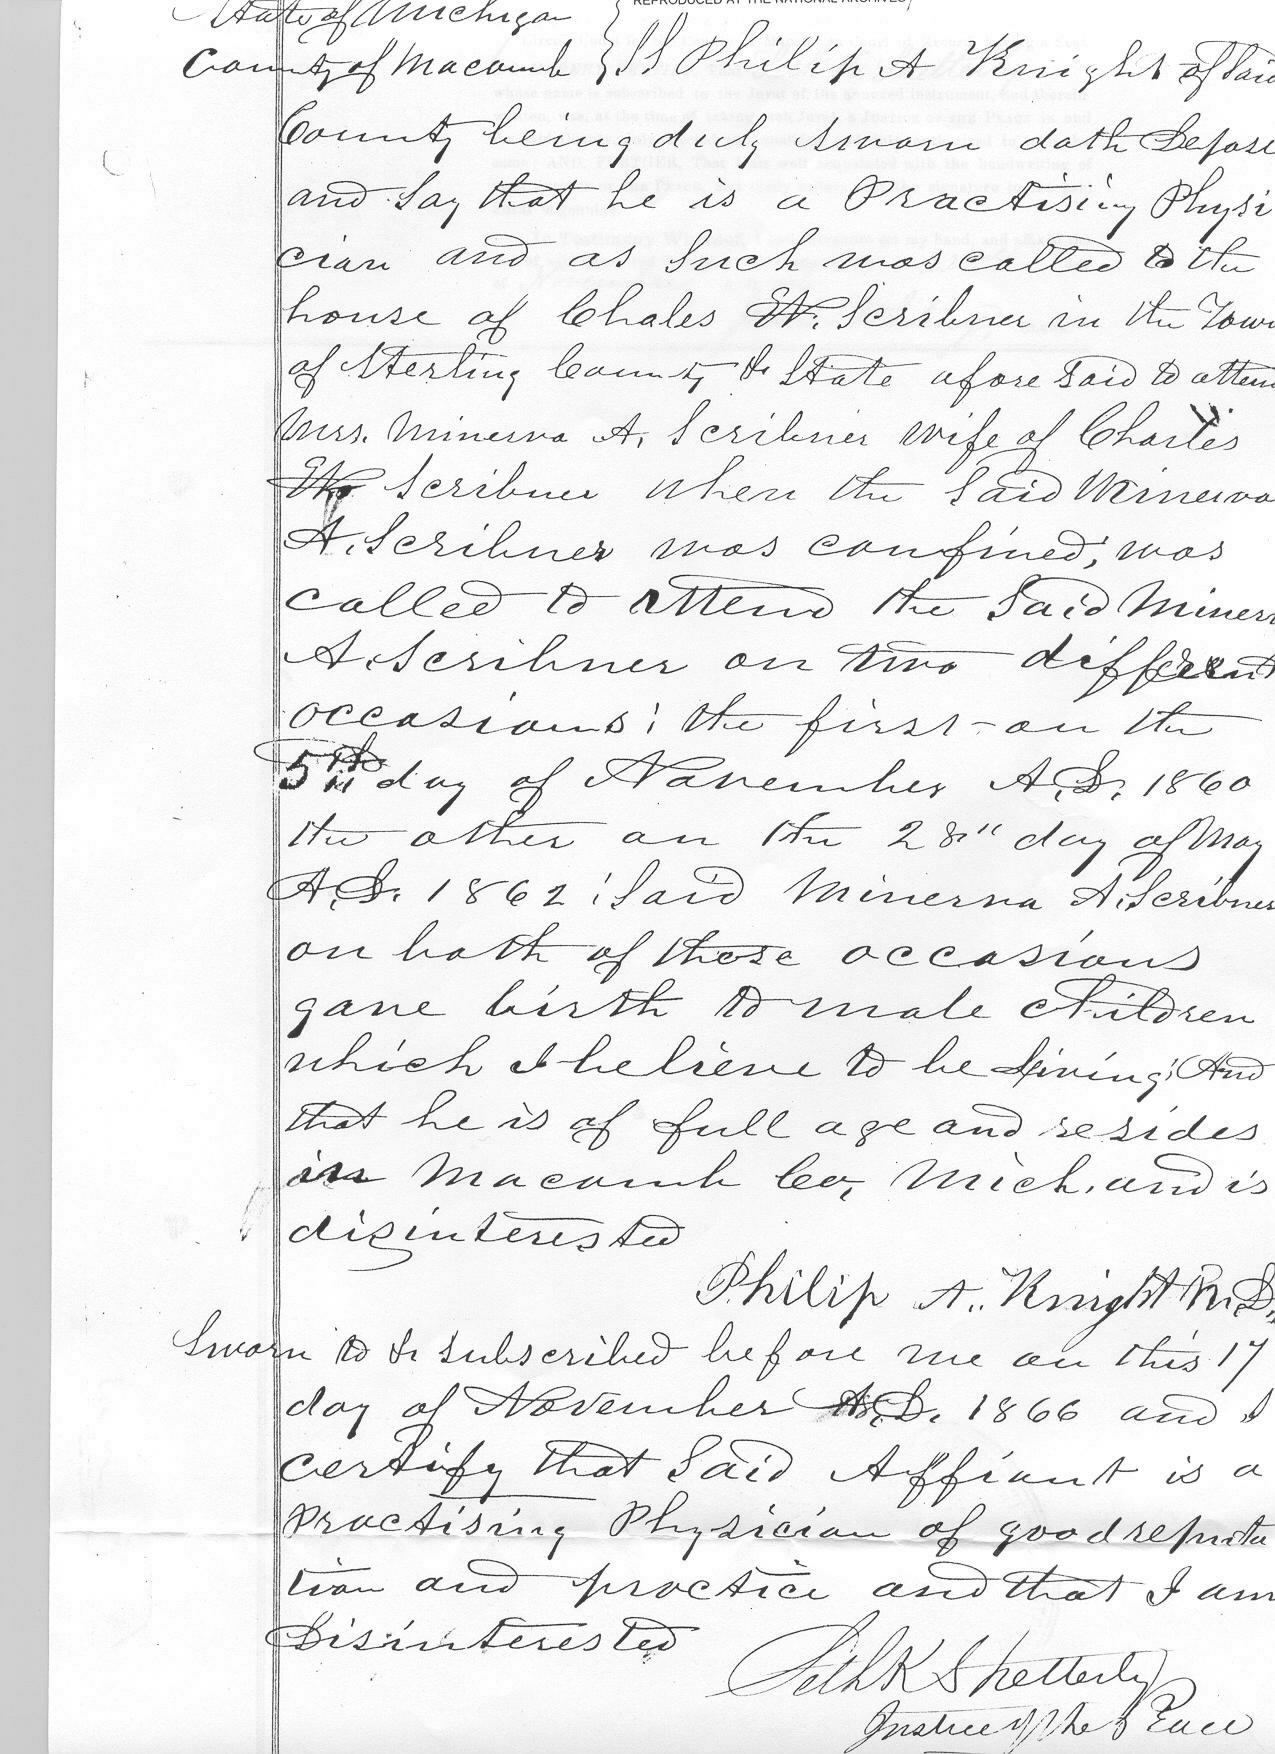 REPRODUCED AT THE NATIONAL ARCHIVES
State of Michigan
County of Macomb } SS Philip A Knight of Said
County being duly sworn doth Depose
and Say that he is a Practising Physi
cian and as Such was called to the
house of Chales W. Scribner in the Town
of Sterling County & State afore Said to atten
Mrs. Minerva A. Scribner wife of Charles
W. Scribner when the Said Minerva
A. Scribner was confined, was
called to attend the Said Minerv
A. Scribner on two different
occasions; the first - on the
5th day of November A.D. 1860
the other on the 28" day of May
A.D. 1862; Said Minerva A. Scribner
on both of those occasions
gave birth to male children
which I believe to be Living; And
that he is of full age and resides
in Macomb Co, Mich. and is
disinterested
Philip A. Knight M.D.
Sworn to & subscribed before me on this 17
day of November A.D. 1866 and I
certify that Said Affiant is a
Practising Physician of good reputa
tion and practice and that I am
Disinterested
Seth K Shetterly
Justice of the Peace